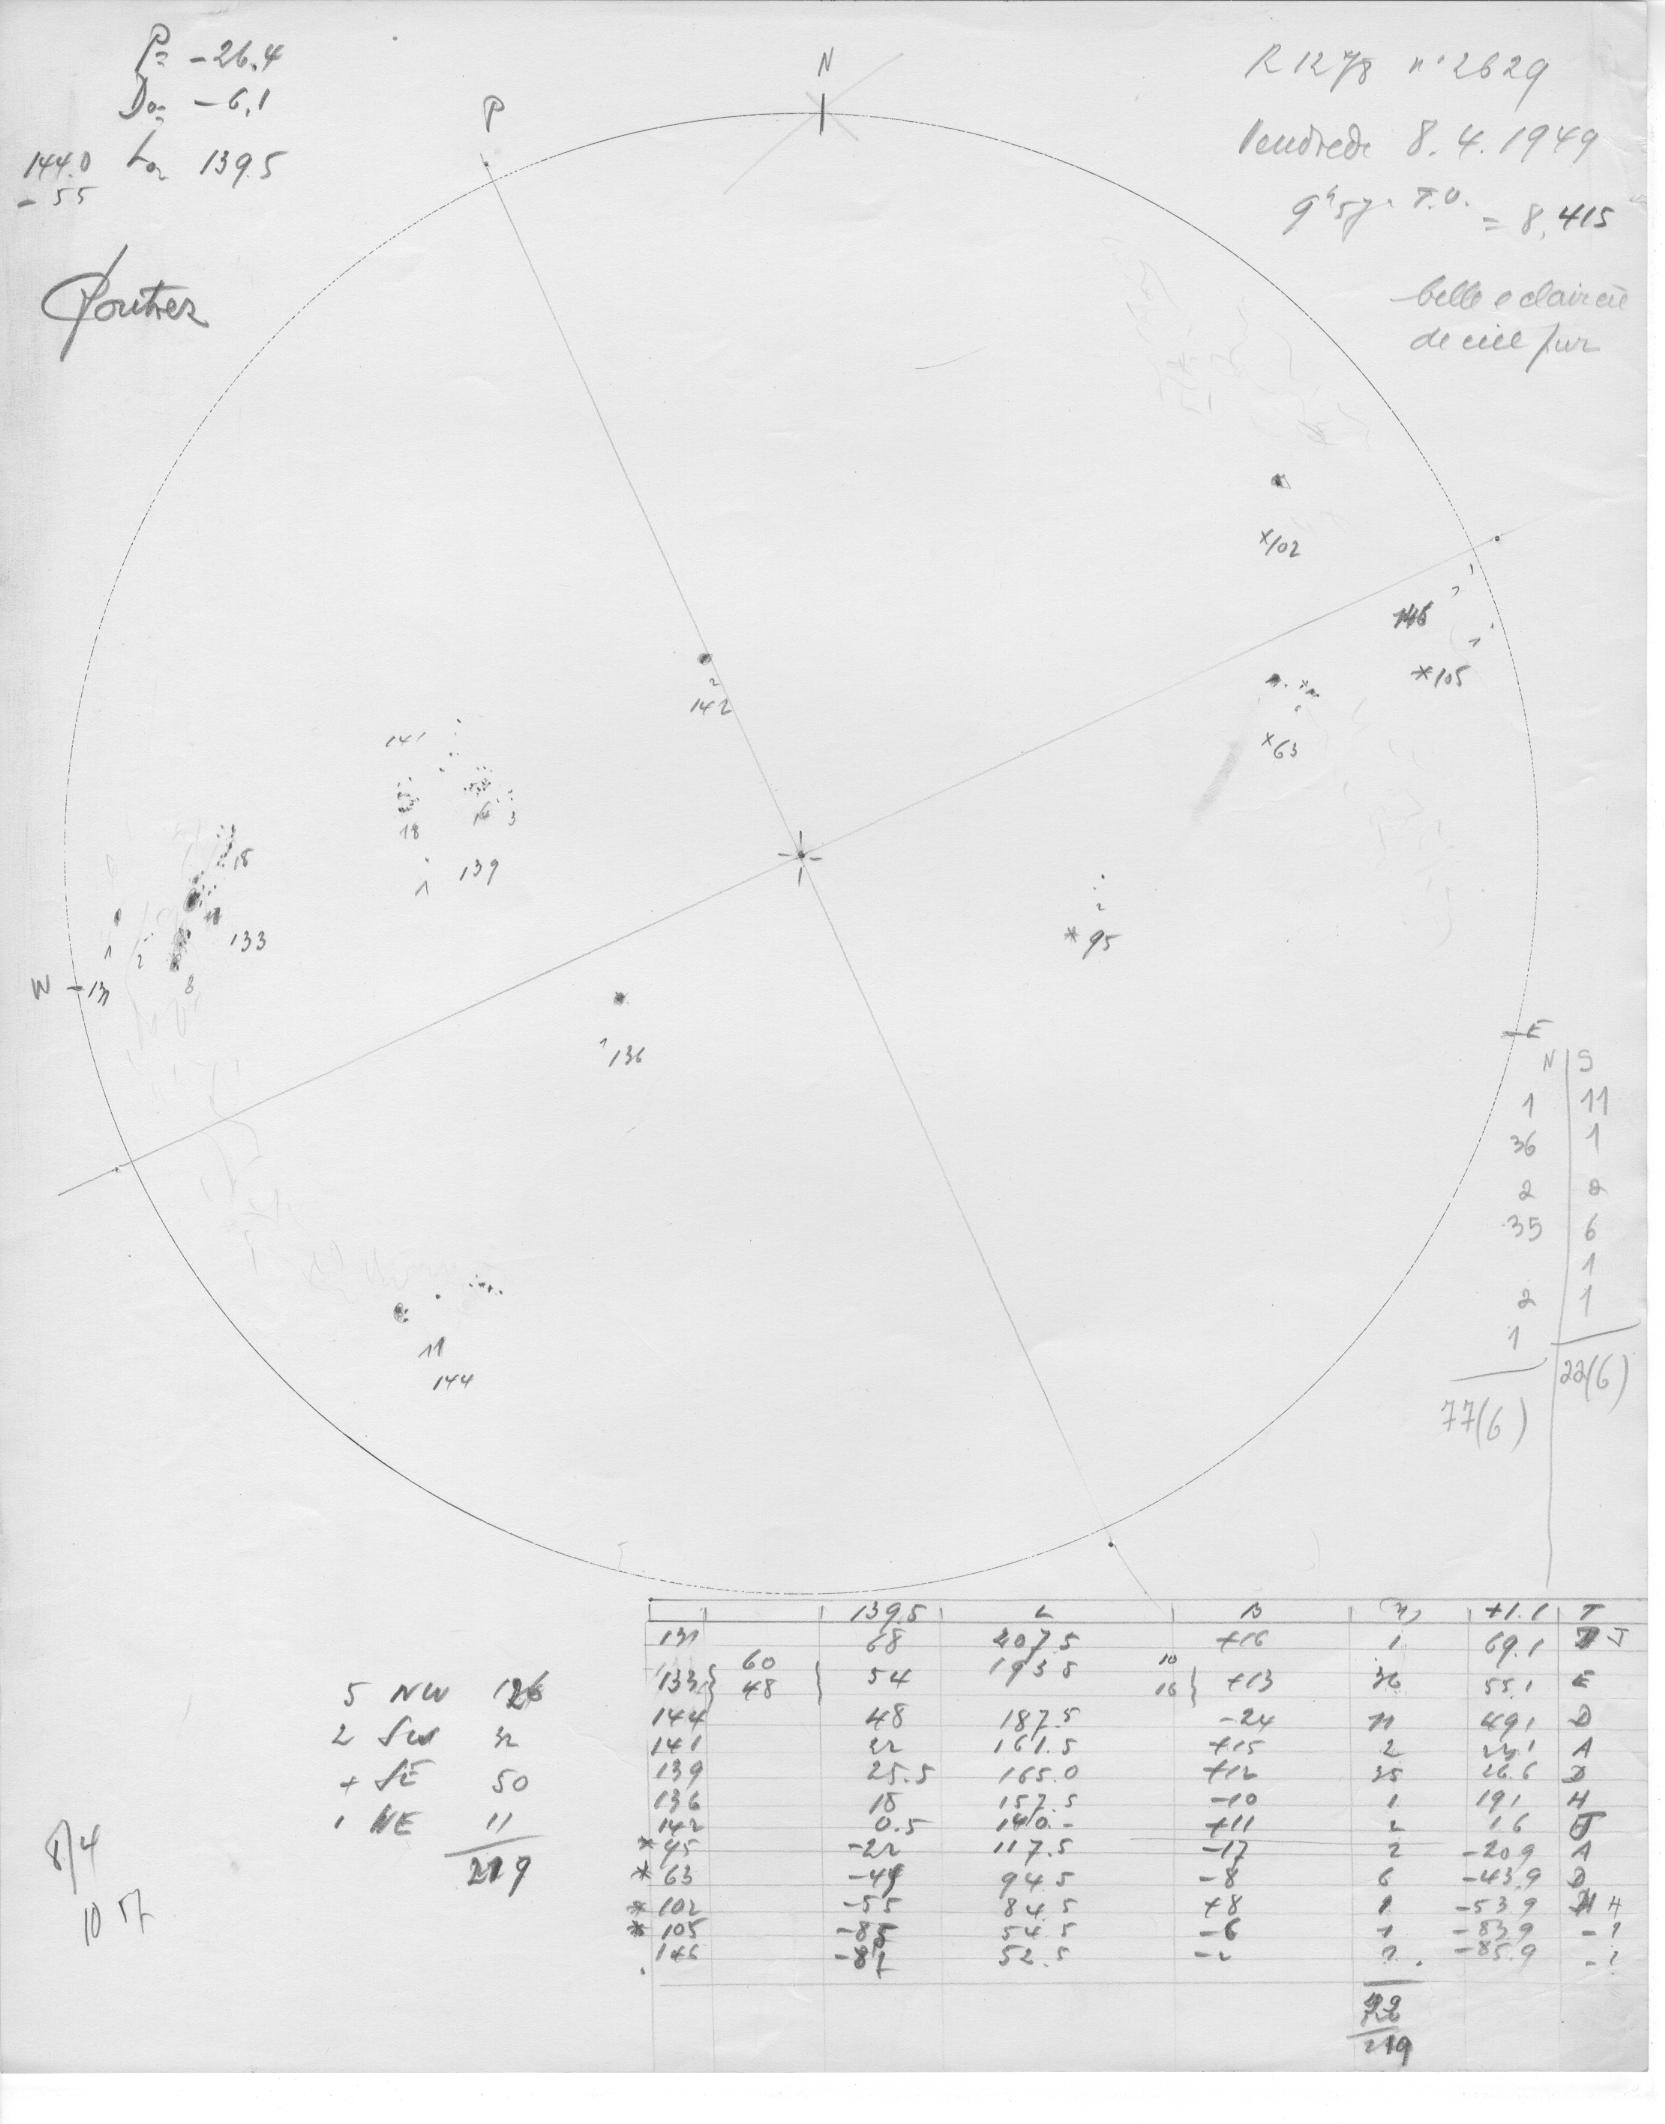 P= -26.4
D0= -6,1
144.0 L0= 139.5
- 55
N
P
n° 2629
Vendredi 8.4.1949
T.U. = 8,415
belle eclaircie
de ciel pur
*102
146
1
*105
*63
142
2
141
18
16
3
139
1
18
11
133
8
2
1
W
131
*95
2
136
1
11
144
E
N | S
1 | 11
36 | 1
2 | 2
35 | 6
1
2 | 1
1
22(6)
77(6)
139.5 L B +1.1 T
131 68 207.5 +16 1 69.1 J
133 60 48 54 193.5 10 16 +13 36 55.1 E
144 48 187.5 -24 11 49.1 D
141 22 161.5 +15 2 23.1 A
139 25.5 165.0 +12 35 26.6 D
136 18 157.5 -10 1 19.1 H
142 0.5 140.- +11 2 1.6 J
*95 -22 117.5 -17 2 -20.9 A
*63 -45 94.5 -8 6 -43.9 D
*102 -55 84.5 +8 1 -53.9 H
*105 -85 54.5 -6 1 -83.9 - ?
146 -87 52.5 -2 2 -85.9 - ?
219
5 NW 126
2 SW 32
+ SE 50
1 NE 11
219
8/4
10